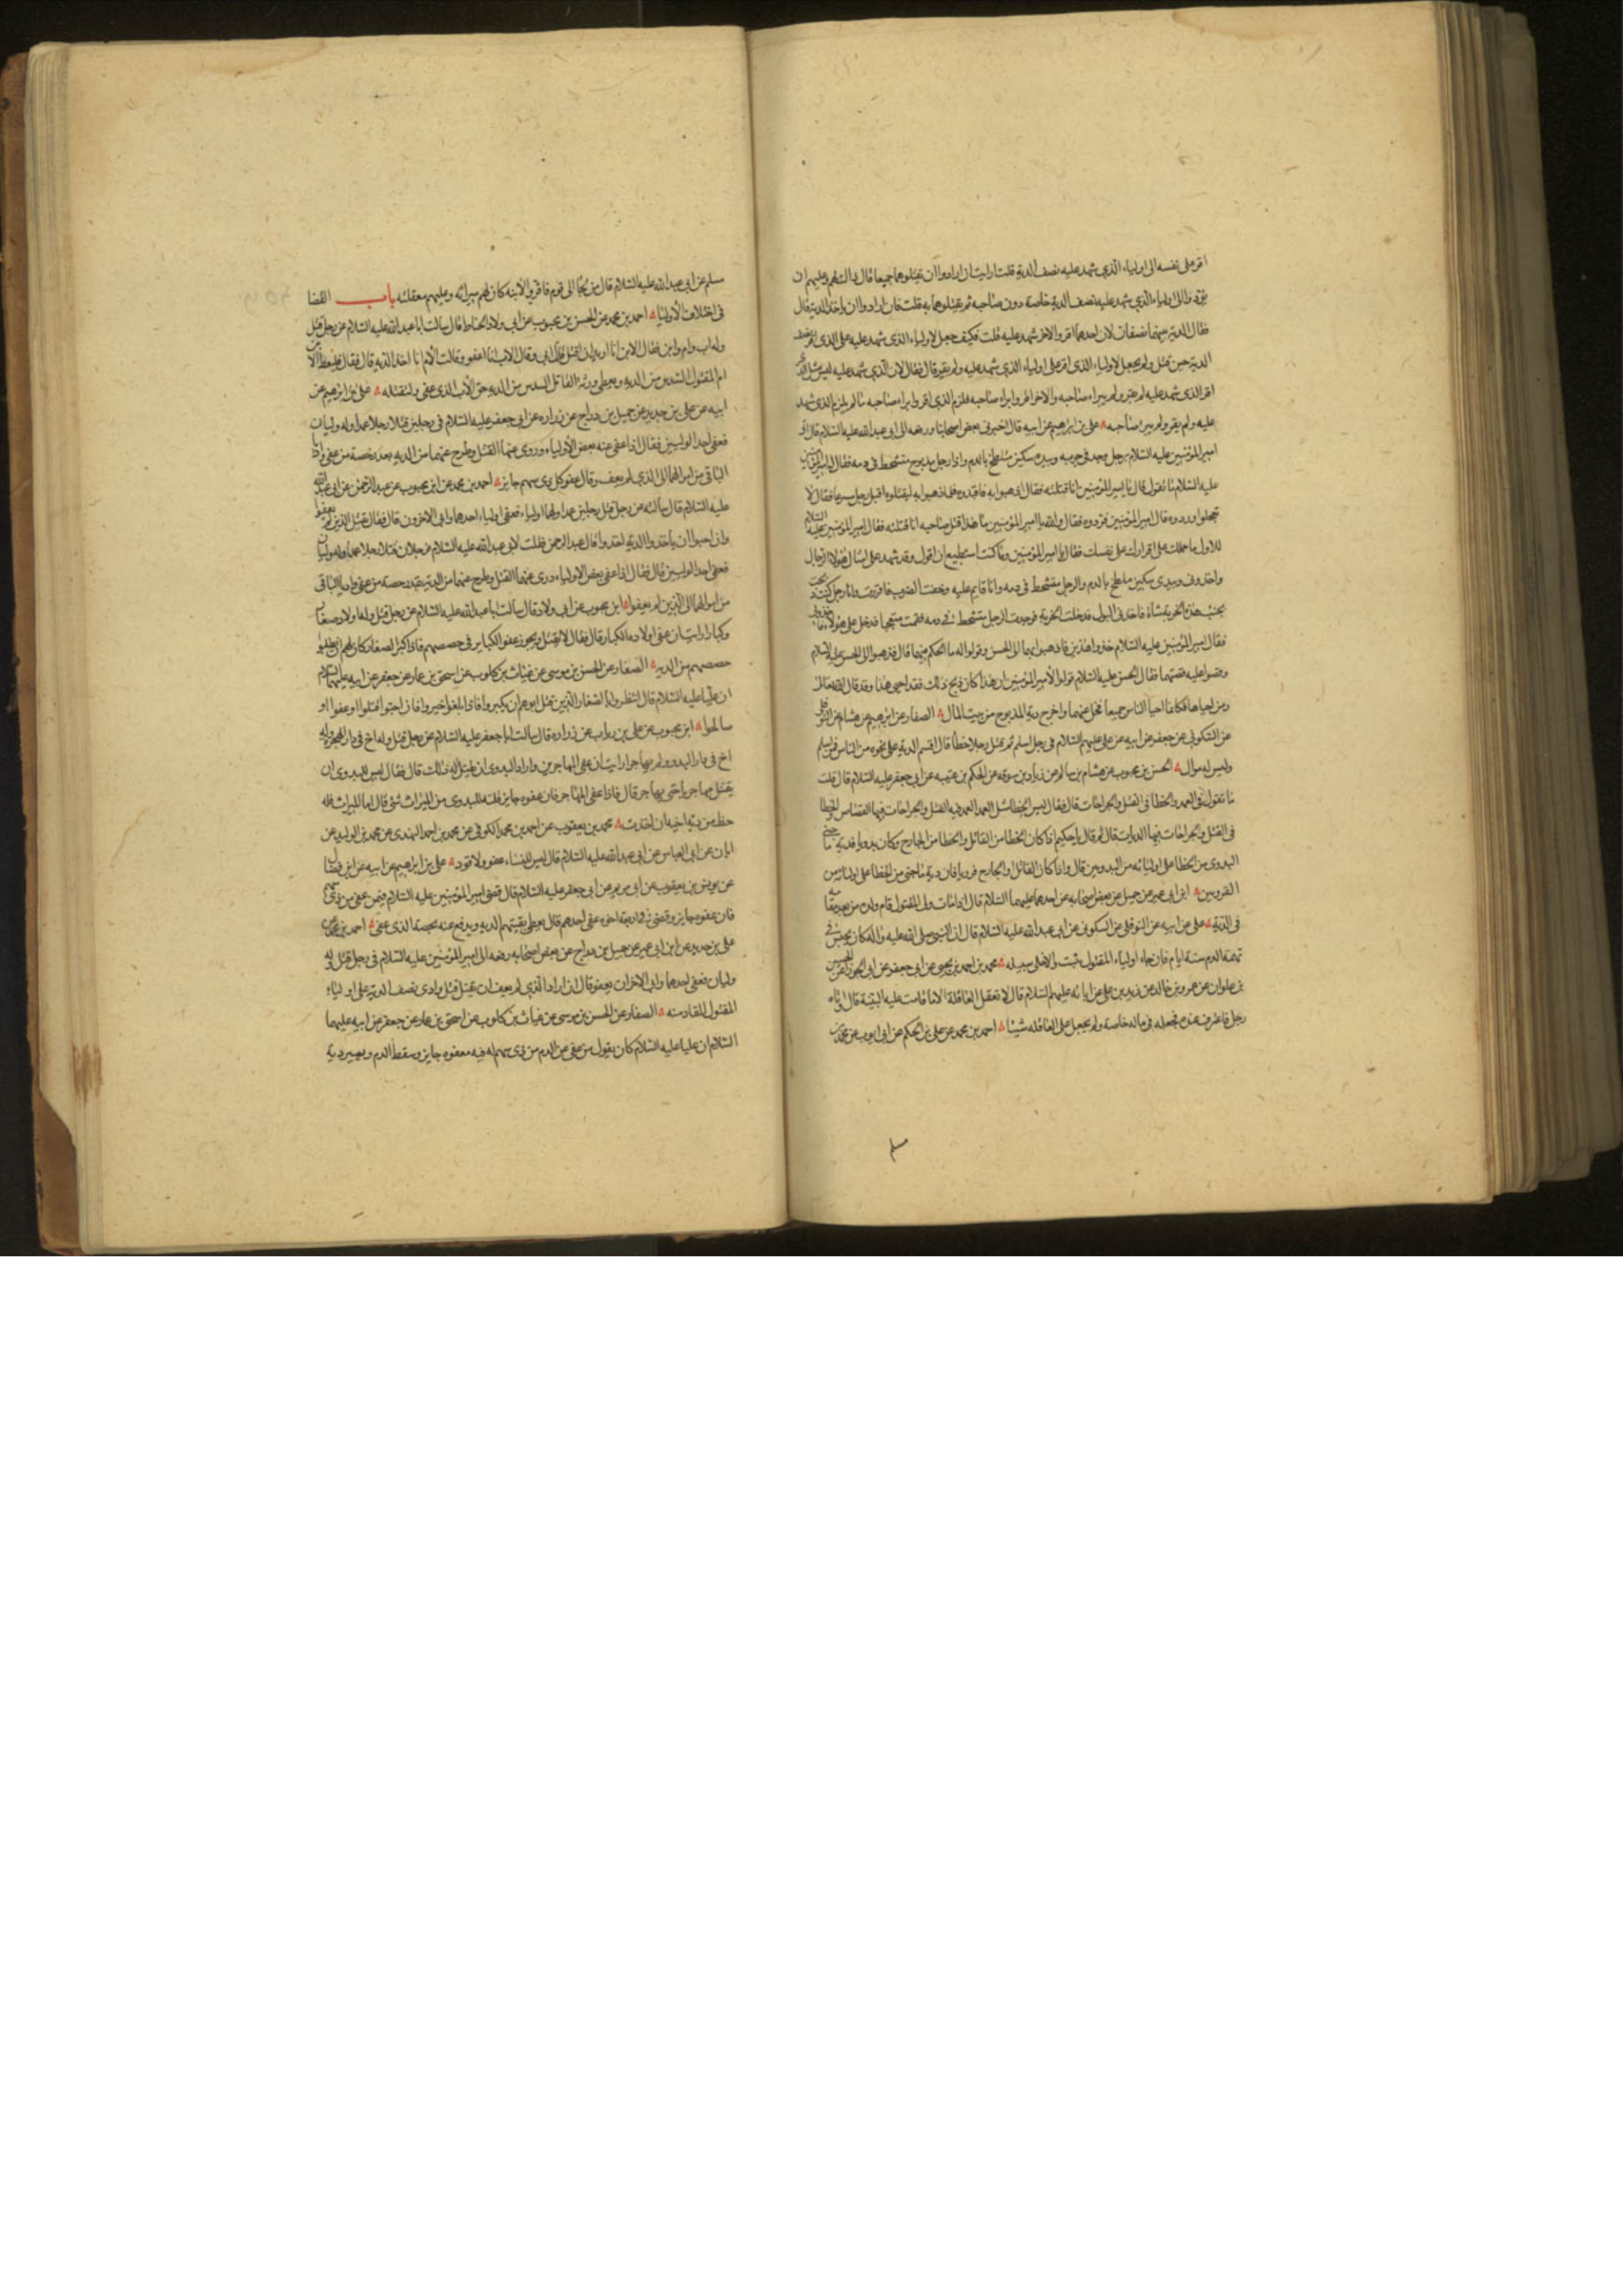 اقر على نفسه الى اولياء الذي شهد عليه نصف الدية قلت ارايت ان ارادوا ان يقتلوهما جميعا قال ذاك لهم وعليهم ان
يؤدوا الى اولياء الذي شهد عليه نصف الدية خاصة دون صاحبه ثم يقتلوهما به قلت فان ارادوا ان ياخذوا الدية قال
فقال الدية بينهما نصفان لان احدهما اقر والاخر شهد عليه قلت فكيف جعل لاولياء الذي شهد عليه على الذي اقر نصف
الدية حين قتل ولم يجعل لاولياء الذي اقر على اولياء الذي شهد عليه ولم يقر قال فقال لان الذي شهد عليه ليس مثل الذي
اقر الذي شهد عليه لم يقر ولم يبراء صاحبه والاخر اقر وابراء صاحبه فلزم الذي اقر وابراء صاحبه ما لم يلزم الذي شهد
عليه ولم يقر ولم يبرء صاحبه علي بن ابراهيم عن ابيه قال اخبرني بعض اصحابنا ورفعه الى ابي عبد الله عليه السلام قال اتي
امير المؤمنين عليه السلام برجل وجد في خربة وبيده سكين متلطخ بالدم واذا رجل مذبوح متشحط في دمه فقال له امير المؤمنين
عليه السلام ما تقول قال يا امير المؤمنين انا قتلته فقال اذهبوا به فاقيدوه فلما ذهبوا به ليقتلوه اقبل رجل مسرعا فقال لا
تعجلوا وردوه قال امير المؤمنين فردوه فقال والله يا امير المؤمنين ما هذا قتل صاحبه انا قتلته فقال امير المؤمنين عليه السلام
للاول ما حملك على اقرارك على نفسك فقال يا امير المؤمنين وما كنت استطيع ان اقول وقد شهد علي امثال هؤلاء الرجال
واخذوني وبيدي سكين ملطخ بالدم والرجل متشحط في دمه وانا قايم عليه وخفت الضرب فاقررت وانا رجل كنت ذبحت
بجنب هذه الخربة شاة فاخذني البول فدخلت الخربة فوجدت الرجل متشحط في دمه فقمت متعجبا فدخل علي هؤلاء فاخذوني
فقال امير المؤمنين عليه السلام خذوا هذين فاذهبوا بهما الى الحسن وقولوا له ما الحكم فيهما قال فذهبوا الى الحسن عليه السلام
وقصوا عليه قصتهما فقال الحسن عليه السلام قولوا لامير المؤمنين ان هذا كان ذبح ذاك فقد احيى هذا وقد قال الله تعالى
ومن احياها فكانما احيا الناس جميعا فخل عنهما واخرج دية المذبوح من بيت المال الصفار عن ابراهيم بن هشام عن النوفلي
عن السكوني عن جعفر عن ابيه عن علي عليهم السلام في رجل اسلم ثم قتل رجلا خطأ قال اقسم الدية على نحوه من الناس فمن اسلم
وليس له موال الحسن بن محبوب عن هشام بن سالم عن زياد بن سوقة عن الحكم بن عتيبة عن ابي جعفر عليه السلام قال قلت
ما تقول في العمد والخطا في القتل والجراحات قال فقال ليس الخطا مثل العمد العمد فيه القتل والجراحات فيها القصاص والخطا
في القتل والجراحات فيها الديات قال ثم قال يا حكم اذا كان الخطا من القاتل والخطا من الجارح وكان بدويا فدية ما جنى
البدوي من الخطا على اوليائه من البدويين قال واذا كان القاتل والجارح قرويا فان دية ما جنى من الخطا على اوليائه من
القرويين ابن ابي عمير عن جميل عن بعض اصحابه عن احدهما عليهما السلام قال اذا مات ولي المقتول قام ولده من بعده مقامه
في الدية علي عن ابيه عن النوفلي عن السكوني عن ابي عبد الله عليه السلام قال ان النبي صلى الله عليه واله كان يحبس في
تهمة الدم ستة ايام فان جاء اولياء المقتول بثبت والا خلى سبيله محمد بن احمد بن يحيى عن ابي جعفر عن ابي الجوزا عن الحسين
بن علوان عن عمرو بن خالد عن زيد بن علي عن ابائه عليهم السلام قال لا تعقل العاقلة الا ما قامت عليه البينة قال واتاه
رجل فاعترف عنده فجعله في ماله خاصة ولم يجعل على العاقلة شيئا احمد بن محمد عن علي بن الحكم عن ابي ايوب عن محمد بن
مسلم
مسلم عن ابي عبد الله عليه السلام قال من لجا الى قوم فاقروا بولايته كان لهم ميراثه وعليهم معقلته باب القضا
في اختلاف الاوليا احمد بن محمد عن الحسن بن محبوب عن ابي ولاد الحناط قال سالت ابا عبد الله عليه السلام عن رجل قتل
وله اب وام وابن فقال الابن انا اريد ان اقتل قاتل ابي وقال الاب انا اعفو وقالت الام انا اخذ الدية قال فقال فليعط الابن
ام المقتول السدس من الدية ويعطي ورثة القاتل السدس من الدية حق الاب الذي عفى وليقتله علي بن ابراهيم عن
ابيه عن علي بن حديد عن جميل بن دراج عن زرارة عن ابي جعفر عليه السلام في رجلين قتلا رجلا عمدا وله وليان
فعفى احد الوليين فقال اذا عفى عنه بعض الاولياء درى عنهما القتل وطرح عنهما من الدية بقدر حصة من عفى واديا
الباقي من اموالهما الى الذي لم يعف وقال عفو كل ذي سهم جايز احمد بن محمد عن ابن محبوب عن عبد الرحمن عن ابي عبد الله
عليه السلام قال سالته عن رجل قتل رجلين عمدا ولهما اولياء فعفى اولياء احدهما وابى الاخرون قال فقال يقتل الذين لم يعفوا
وان احبوا ان ياخذوا الدية اخذوا قال عبد الرحمن فقلت لابي عبد الله عليه السلام فرجلان قتلا رجلا عمدا وله وليان
فعفى احد الوليين قال فقال اذا عفى بعض الاولياء درى عنهما القتل وطرح عنهما من الدية بقدر حصة من عفى واديا الباقي
من اموالهما الى الذين لم يعفوا ابن محبوب عن ابي ولاد قال سالت ابا عبد الله عليه السلام عن رجل قتل وله اولاد صغار
وكبار ارايت ان عفى اولاده الكبار قال فقال لا يقتل ويجوز عفو الكبار في حصصهم فاذا كبر الصغار كان لهم ان يطلبوا
حصصهم من الدية الصفار عن الحسن بن موسى عن غياث بن كلوب عن اسحق بن عمار عن جعفر عن ابيه عليهما السلام
ان عليا عليه السلام قال انتظروا بالصغار الذين قتل ابوهم ان يكبروا فاذا بلغوا خيروا فان احبوا قتلوا او عفوا او
صالحوا ابن محبوب عن علي بن رياب عن زرارة قال سالت ابا جعفر عليه السلام عن رجل قتل وله اخ في دار الهجرة وله
اخ في دار البدو ولم يهاجر ارايت ان عفى المهاجرين واراد البدوي ان يقتل اله ذلك قال فقال ليس للبدوي ان
يقتل مهاجريا حتى يهاجر قال فاذا عفى المهاجر فان عفوه جايز قلت له للبدوي من الميراث شئ قال اما الميراث فله
حظه من دية اخيه ان اخذت محمد بن يعقوب عن احمد بن محمد الكوفي عن محمد بن احمد النهدي عن محمد بن الوليد عن
ابان عن ابي العباس عن ابي عبد الله عليه السلام قال ليس للنساء عفو ولا قود علي بن ابراهيم عن ابيه عن ابن فضال
عن يونس بن يعقوب عن ابي مريم عن ابي جعفر عليه السلام قال قضى امير المؤمنين عليه السلام فيمن عفى من ذي سهم
فان عفوه جايز وقضى في اربعة اخوة عفى احدهم قال يعطى بقيتهم الدية ويرفع عنه بحصة الذي عفى احمد بن محمد عن
علي بن حديد عن ابن ابي عمير عن جميل بن دراج عن بعض اصحابه رفعه الى امير المؤمنين عليه السلام في رجل قتل وله
وليان فعفى احدهما وابى الاخر ان يعفو قال ان اراد الذي لم يعف ان يقتل قتل وادى نصف الدية على اولياء
المقتول المقاد منه الصفار عن الحسن بن موسى عن غياث بن كلوب عن اسحق بن عمار عن جعفر عن ابيه عليهما
السلام ان عليا عليه السلام كان يقول من عفى عن الدم من ذي سهم له فيه فعفوه جايز وسقط الدم ويصير دية